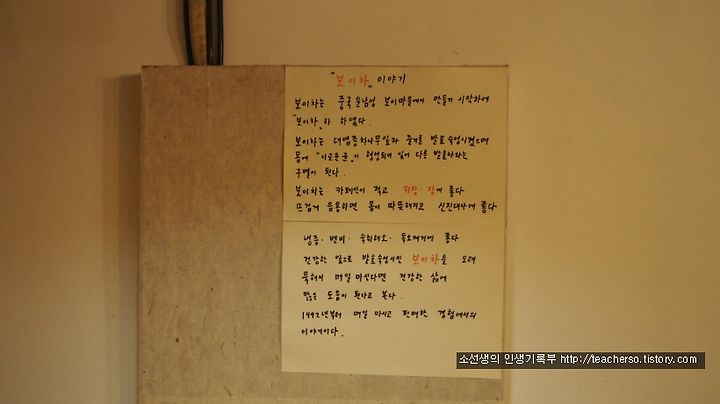 "보이차" 이야기
보이차는 중국 운남성 보이마을에서 만들기 시작하여
"보이차"라 하였다.
보이차는 대엽종차나무잎과 줄기를 발효숙성시켰으며
몸에 "이로운균"이 형성되어 있어 다른 발효차와는
구별이 된다.
보이차는 카페인이 적고 위장·장에 좋다
뜨겁게 음용하면 몸이 따뜻해지고 신진대사에 좋다
냉증·변비·숙취해소·독소제거에 좋다
건강한 잎으로 발효숙성시킨 보이차를 오래
묵혀서 매일 마신다면 건강한 삶에
많은 도움이 된다고 본다.
1992년부터 매일 마시고 판매한 경험에서의
이야기이다.
소선생의 인생기록부 http://teacherso.tistory.com